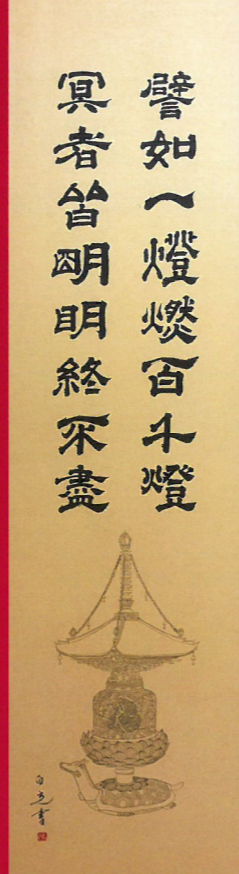 譬如一燈燃百千燈
冥者皆明明終不盡